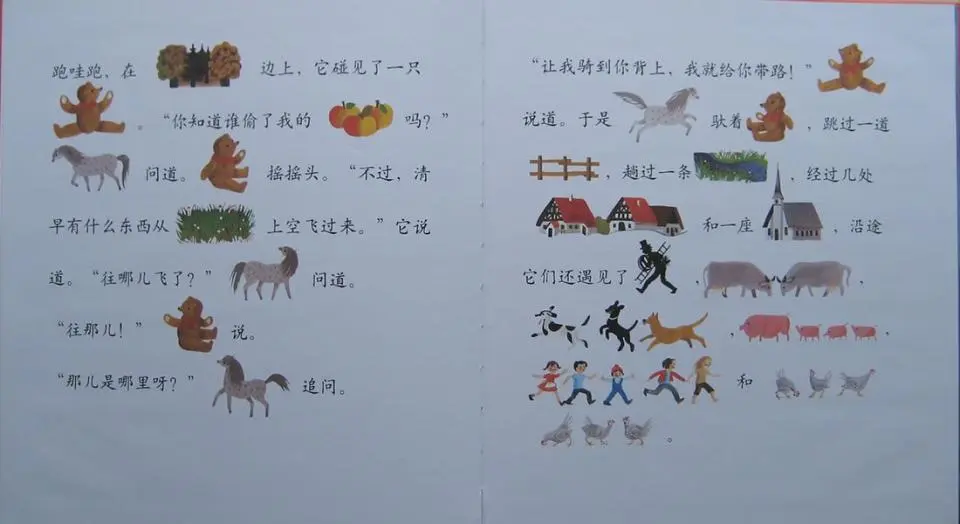 跑哇跑，在 边上，它碰见了一只
。“你知道谁偷了我的 吗？”
问道。 摇摇头。“不过，清
早有什么东西从 上空飞过来。”它说
道。“往哪儿飞了？” 问道。
“往那儿！” 说。
“那儿是哪里呀？” 追问。
“让我骑到你背上，我就给你带路！”
说道。于是 驮着 ，跳过一道
，趟过一条 ，经过几处
和一座 ，沿途
它们还遇见了 ， ，
， ，
和
。